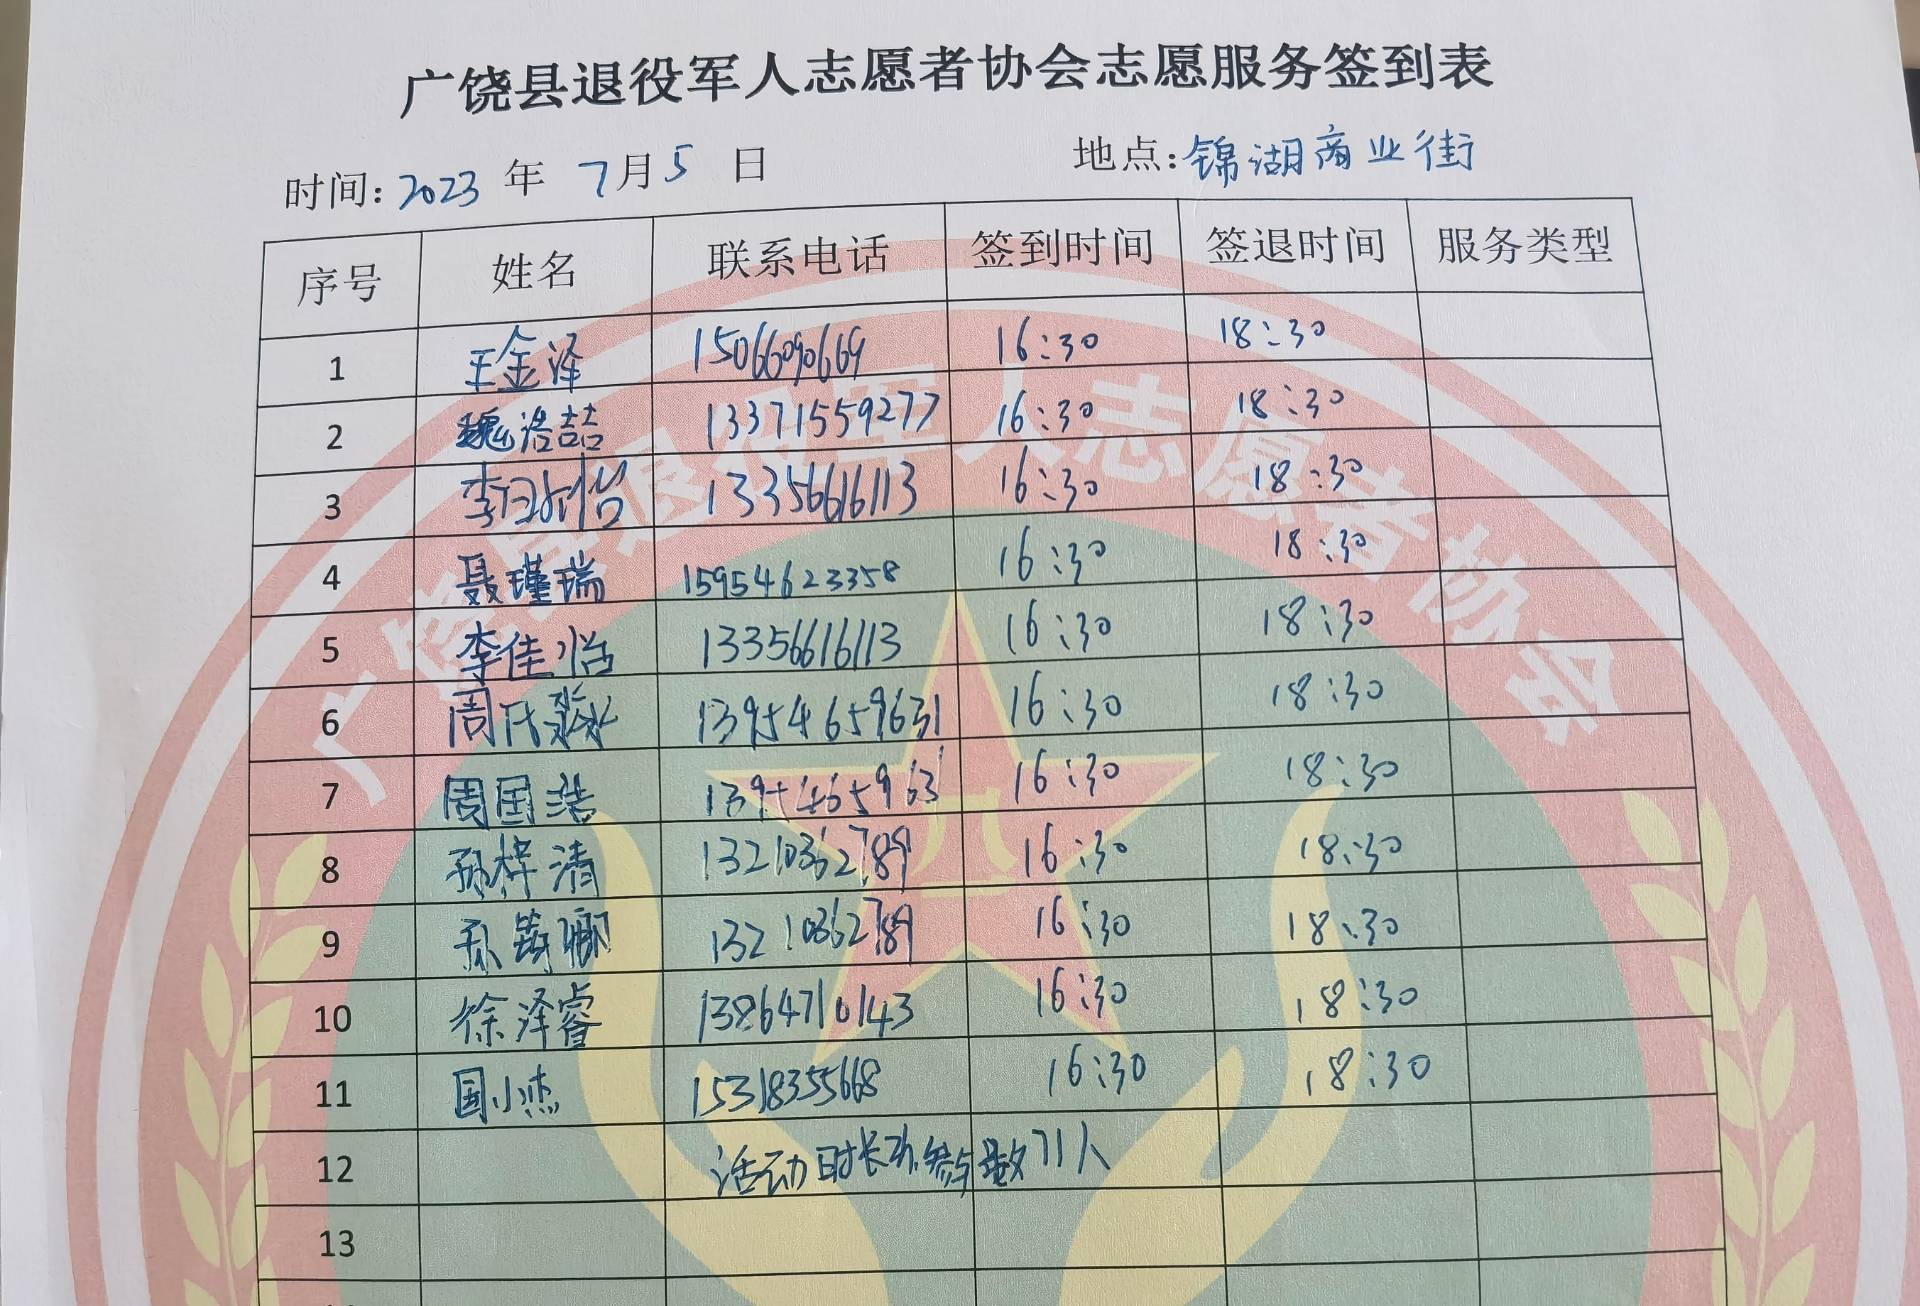 广饶县退役军人志愿者协会志愿服务签到表
时间: 2023 年 7月5 日 地点: 锦湖商业街
序号 姓名 联系电话 签到时间 签退时间 服务类型
1 王金泽 15066090669 16:30 18:30
2 魏浩喆 13371559277 16:30 18:30
3 李 怡 13356616113 16:30 18:30
4 聂瑾瑞 15954623358 16:30 18:30
5 李佳怡 13356616113 16:30 18:30
6 周 13954659631 16:30 18:30
7 周国浩 13954659631 16:30 18:30
8 孙梓清 13210362789 16:30 18:30
9 孙 13210362789 16:30 18:30
10 徐泽睿 13864710143 16:30 18:30
11 国小杰 15318355668 16:30 18:30
12 活动时长 参与 数 71人
13
广饶县退役军人志愿者协会
八一